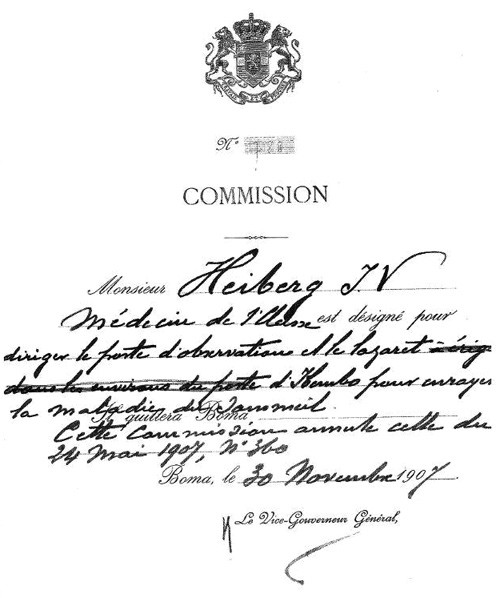 N°
COMMISSION
Monsieur Heiberg IV
Médecin de 1ère Classe est désigné pour
diriger le poste d'observation et le lazaret à érig
dans les environs du poste d'Ibembo pour enrayer
la maladie du sommeil
Il quittera Boma
Cette commission annule celle du
24 Mai 1907, N° 360
Boma, le 30 Novembre 1907
Le Vice-Gouverneur Général,